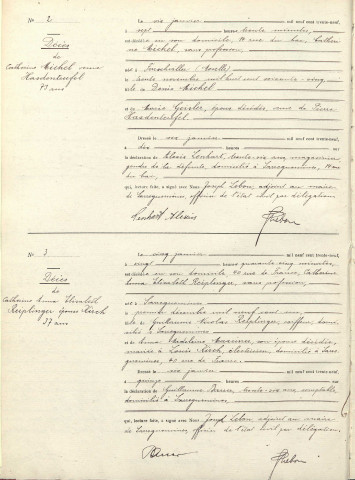 N° 2
Décès
de
Catherine Michel veuve
Hardenteufel
71 ans
Le six janvier mil neuf cent trente-neuf,
à sept heures trente minutes,
est décédée en son domicile, 11 rue du bac, Catheri-
ne Michel, sans profession,
née à (Moselle)
le trente novembre mil huit cent soixante-
fille de Denis Michel
et de Marie Geisler, époux décédés, veuve de Pierre
Hardenteufel
Dressé le six janvier mil neuf cent trente-neuf,
à dix heures sur
la déclaration de Alexis Lenhart, trente-six ans, magasinier,
gendre de la défunte, domicilié à Sarreguemines, 11 rue
du bac,
qui, lecture faite, a signé avec Nous Joseph Lebon, adjoint au maire
de Sarreguemines, officier de l'état civil par délégation.
Lenhart Alexis
Lebon
N° 3
Décès
de
Catherine Anna Elisabeth
Reiplinger épouse Kirsch
37 ans
Le cinq janvier mil neuf cent trente-neuf,
à vingt heures quarante cinq minutes,
est décédée en son domicile, 40 rue de France, Catherine
Anna Elisabeth Reiplinger, sans profession,
née à Sarreguemines
le premier décembre mil neuf cent un,
fille de Guillaume Nicolas Reiplinger, coiffeur, domi-
cilié à Sarreguemines
et de Anna Madeleine, son épouse décédée,
mariée à Louis Kirsch, électricien, domicilié à Sarre-
guemines, 40 rue de France.
Dressé le six janvier mil neuf cent trente-neuf,
à quinze heures sur
la déclaration de Guillaume, trente-six ans, comptable,
domicilié à Sarreguemines
qui, lecture faite, a signé avec Nous Joseph Lebon, adjoint au maire
de Sarreguemines, officier de l'état civil par délégation.
Lebon